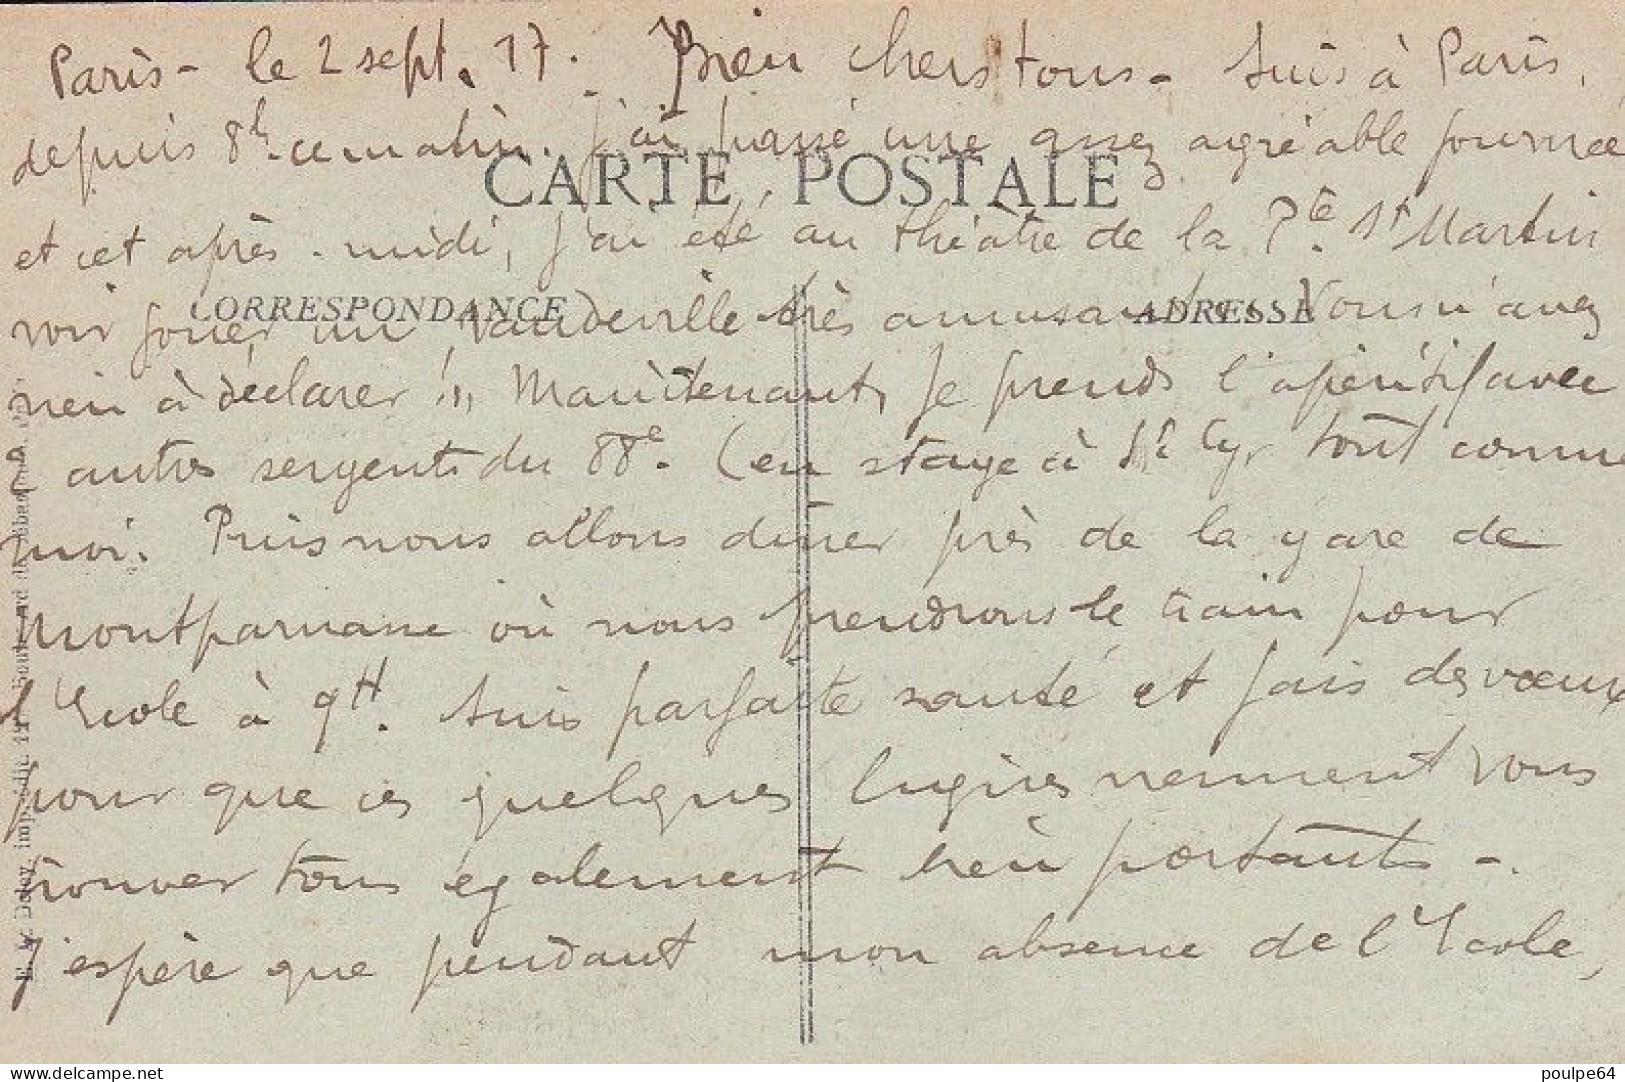 Paris - le 2 sept. 17. Bien chers tous - Suis à Paris,
depuis 8h. ce matin. J'ai passé une assez agréable journée
CARTE POSTALE
et cet après-midi, j'ai été au théâtre de la Pte. St Martin
CORRESPONDANCE
ADRESSE
voir jouer un vaudeville très amusant " Vous n'avez
rien à déclarer !" Maintenant, je prends l'apéritif avec
2 autres sergents du 88e. (en stage à St Cyr tout comme
moi. Puis nous allons dîner près de la gare de
Montparnasse où nous prendrons le train pour
l'Ecole à 9H. Suis parfaite santé et fais des vœux
pour que ces quelques lignes viennent vous
trouver tous également bien portants -.
J'espère que pendant mon absence de l'Ecole,
delcampe.net
poulpe64